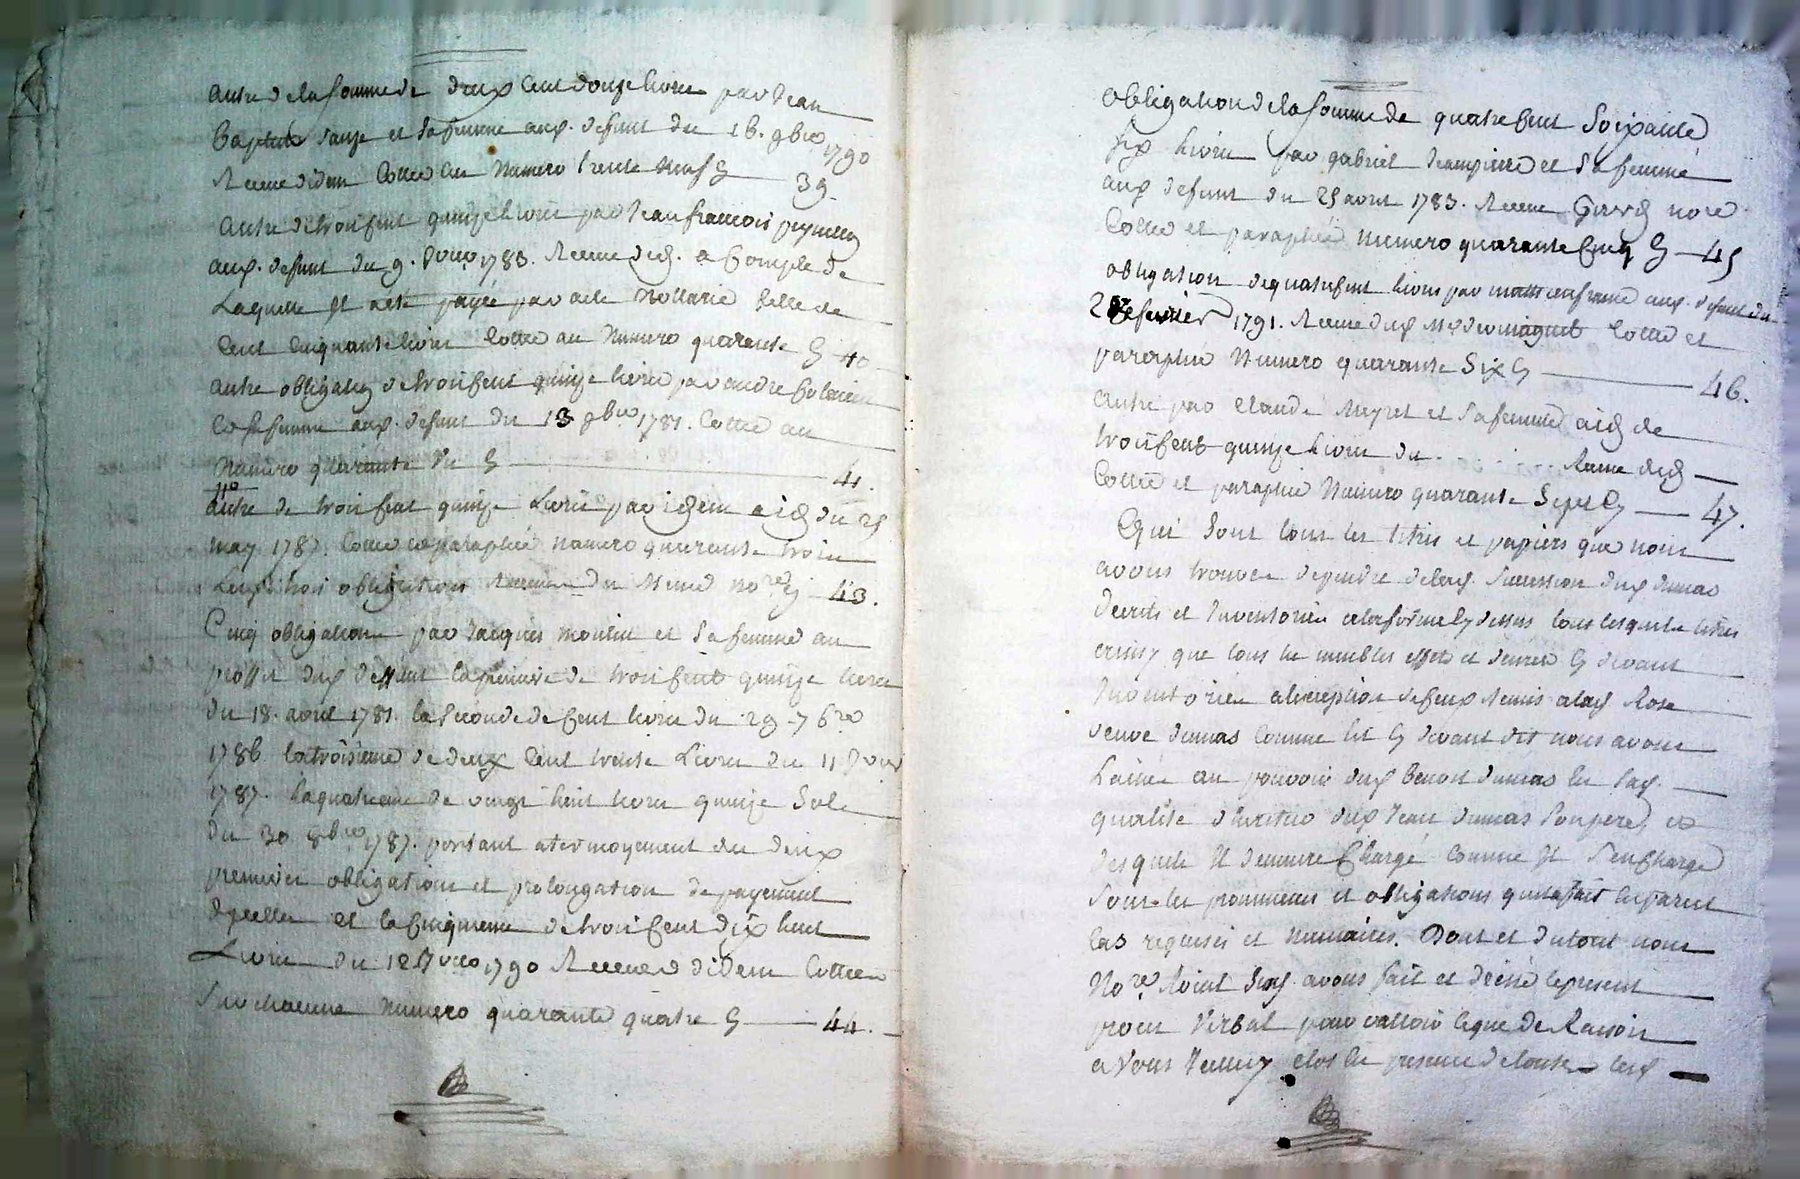 autre de la somme de deux cent douze livres par Jean
Baptiste et sa femme aud. defunt du 16. 9bre 1790
Receue didem Cottée au Numero trente neuf 39
autre de trois cent quinze livres par Jean francois
aud. defunt du 9. 1783. Receue dud. a Compte de
Laquelle Il a eté payée par acte Nottarié celle de
Cent Cinquante livres Cottée au Numero quarante 40
autre obligation de trois cent quinze livres par andre
et sa femme aud. defunt du 13 8bre 1781. Cottée au
Numero quarante Un 41.
autre de trois cent quinze Livres par idem aud du 25
may 1787. Cottée et paraphée numero quarante trois
Lesd. trois obligations Receues du Meme nore 43.
Cinq obligations par Jacques moulin et sa femme au
proffit dud deffunt la premiere de trois cent quinze livres
du 18. avril 1781. la Seconde de Cent livres du 29 7bre
1786 la troisieme de deux Cent trente Livres du 11
1787. la quatrieme de vingt huit livres quinze Sols
du 30 8bre 1787. portant atermoyement des deux
premieres obligations et prolongation de payement
dycelles et la Cinquieme de trois Cent dix huit
Livres du 12 1790 Receues didem Cottées
Sur chacune Numero quarante quatre 44.
Obligation de la somme de quatre Cent Soixante
six livres par gabriel et Sa femme
aud defunt du 25 avril 1783. Receue nore
Cottée et paraphée Numero quarante Cinq 45
obligation de quatre Cent livres par aud. defunt du
2 fevrier 1791. Receue dud Me Cottée et
paraphée Numero quarante Six 46.
autre par Claude et Sa femme aud de
trois Cent quinze Livres du Receue dud
Cottée et paraphée Numero quarante Sept 47.
Qui sont tous les titres et papiers que nous
avons trouves dependre de lad. Succession dud dumas
decrits et Inventoriés cy dessus tous lesquels titres
que tous les meubles effets et denrées cy devant
Inventoriés a lexception de Ceux Remis a lad Rose
veuve dumas Comme Est Cy devant dit nous avons
Laissé au pouvoir dud Benoit dumas En Sad.
qualité dheritier dud Jean dumas Son pere
desquels Il demeure Chargé Comme Il Sen Charge
Sous les promesses et obligations quil a fait En pareil
Cas requises et Necessaires. Dont et du tout nous
Nore avons fait et le present
proces Verbal pour valloir Ce que de Raison
a clos En presence de lad